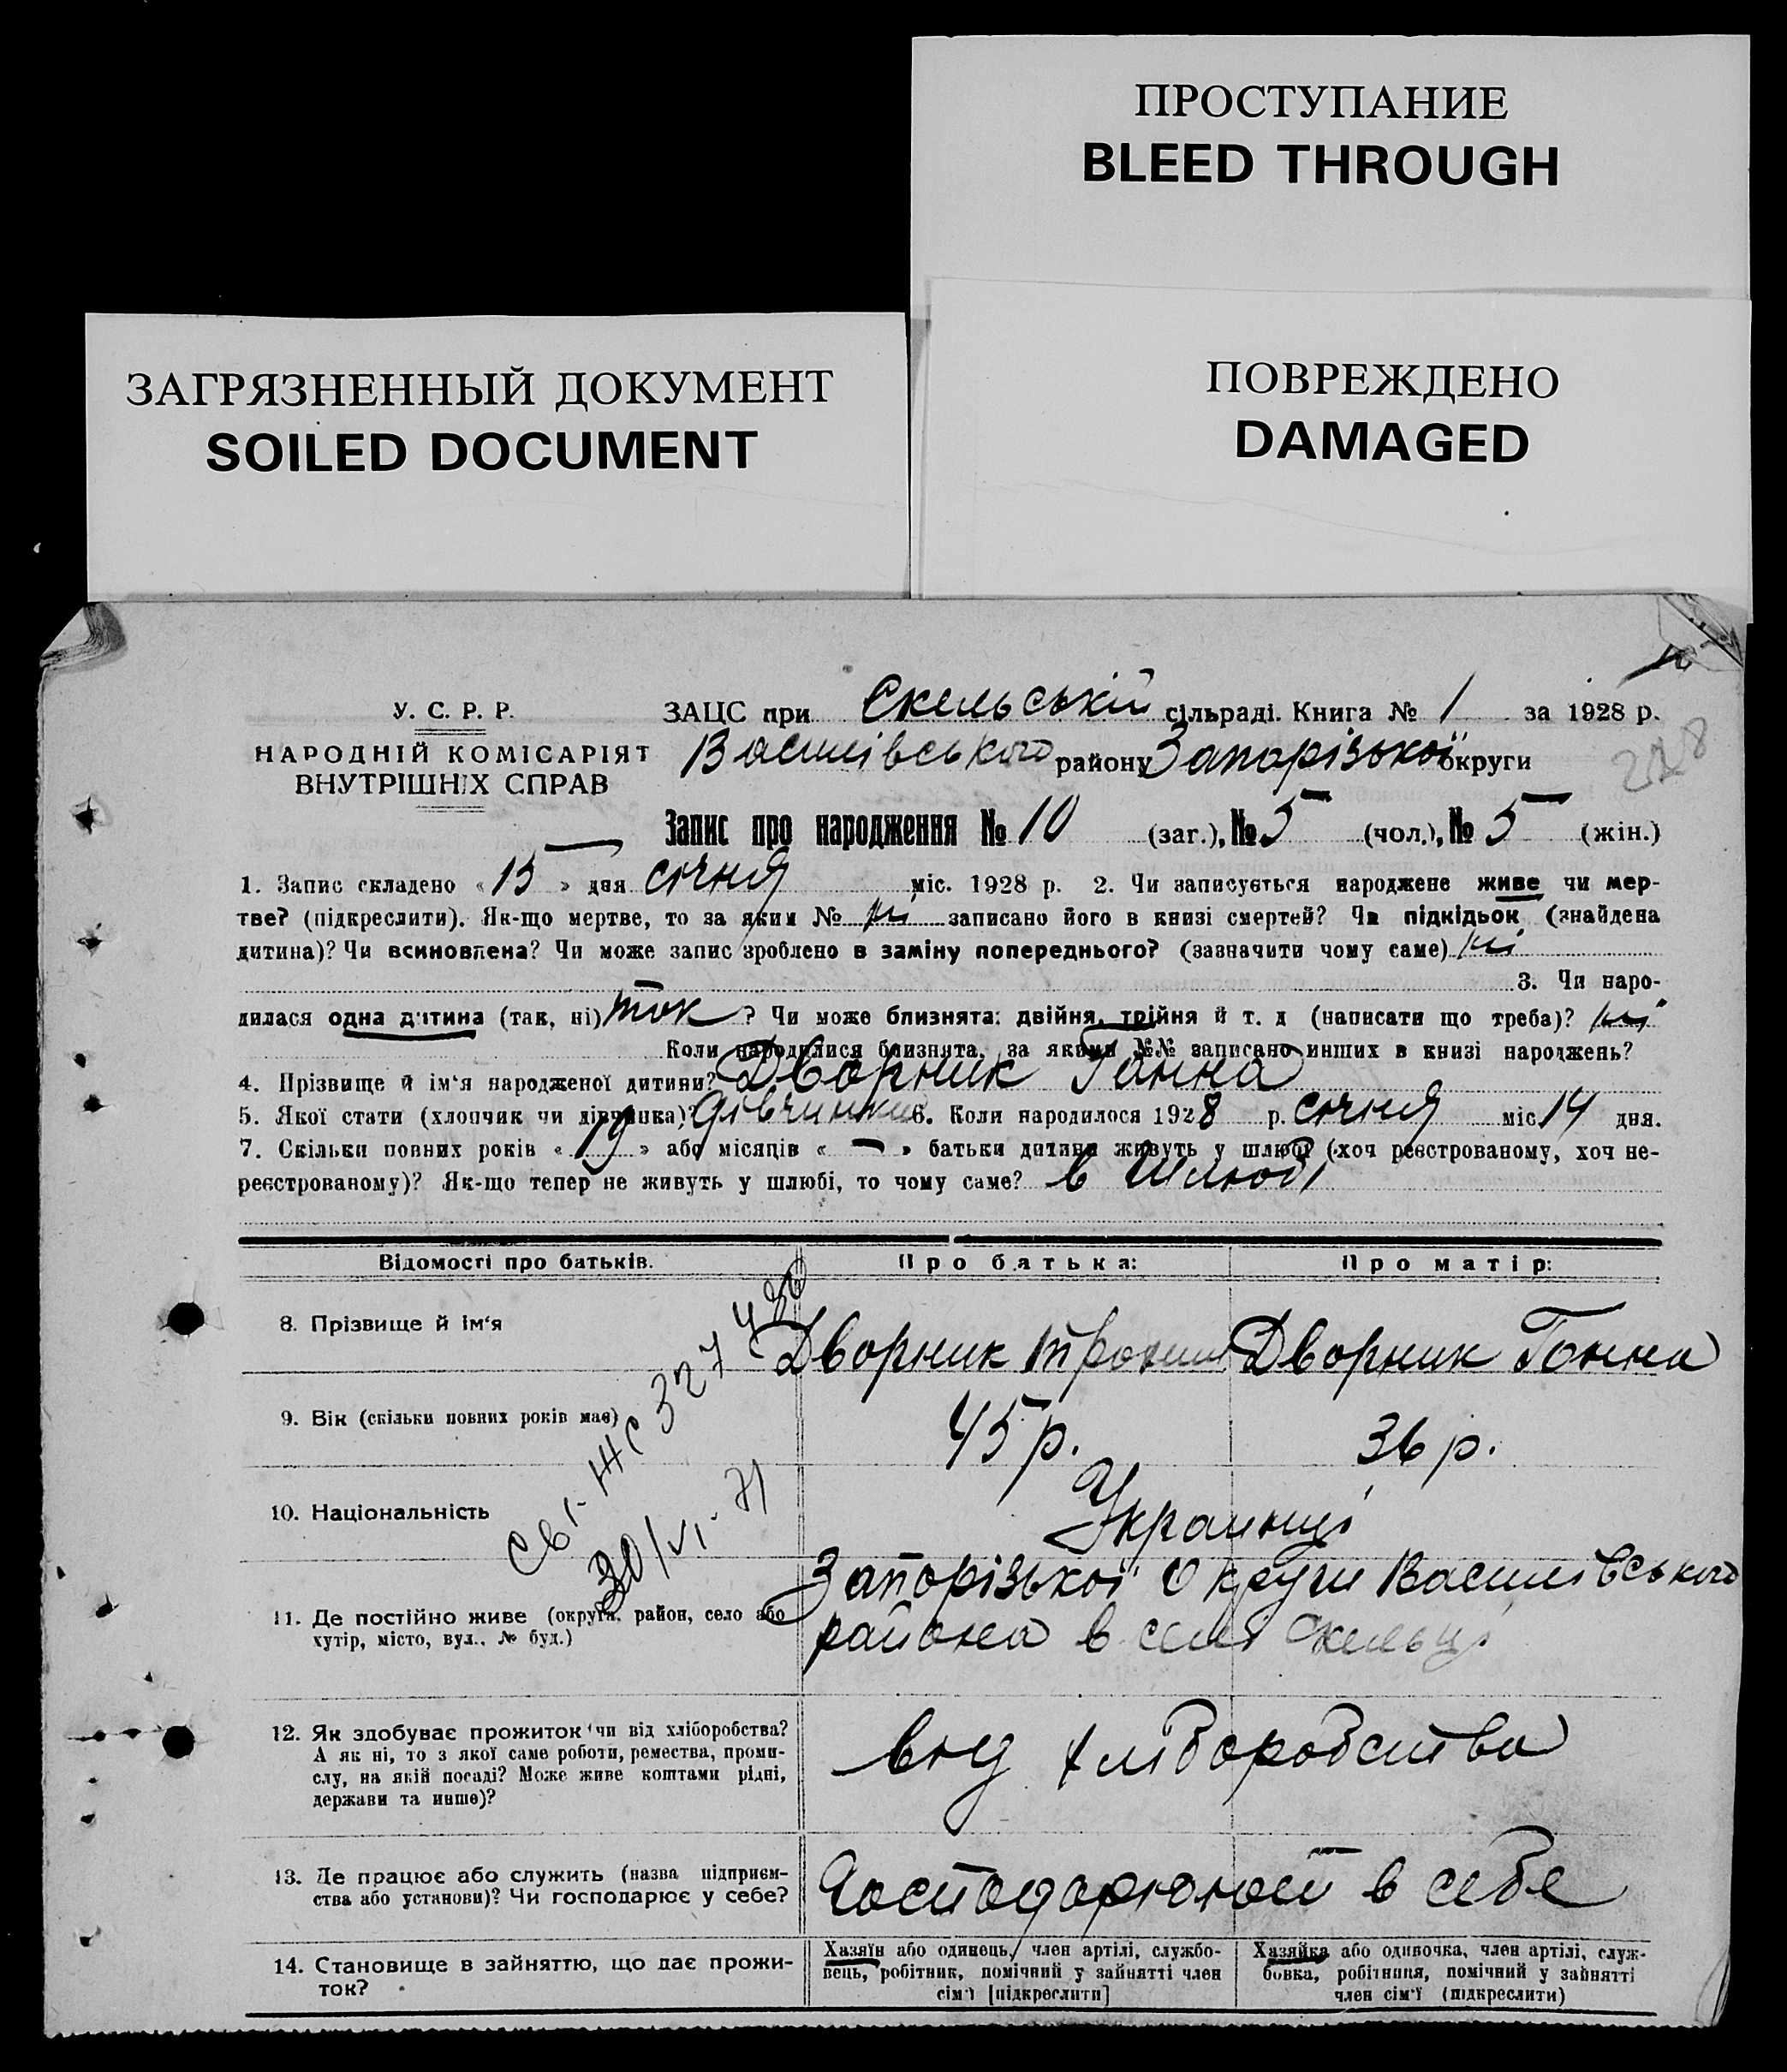 ПРОСТУПАНИЕ
BLEED THROUGH
ЗАГРЯЗНЕННЫЙ ДОКУМЕНТ
SOILED DOCUMENT
ПОВРЕЖДЕНО
DAMAGED
У. С. Р. Р.
НАРОДНІЙ КОМІСАРІЯТ
ВНУТРІШНІХ СПРАВ
ЗАЦС при Скельській сільраді. Книга № 1 за 1928 р.
Василівського району Запорізької округи
228
Запис про народження № 10 (заг.), № 5 (чол.), № 5 (жін.)
1. Запис складено « 15 » дня січня міс. 1928 р. 2. Чи записується народжене живе чи мер-
тве? (підкреслити). Як-що мертве, то за яким № ні записано його в книзі смертей? Чи підкідьок (знайдена
дитина)? Чи всиновлена? Чи може запис зроблено в заміну попереднього? (зазначити чому саме) ні
3. Чи наро-
дилася одна дитина (так, ні) так ? Чи може близнята: двійня, трійня й т. д (написати що треба)? ні
Коли народилися близнята, за якими №№ записано инших в книзі народжень?
4. Прізвище й ім‘я народженої дитини? Дворник Ганна
5. Якої стати (хлопчик чи дівчинка) дівчинка 6. Коли народилося 1928 р. січня міс 14 дня.
7. Скільки повних років « 19 » або місяців « — » батьки дитини живуть у шлюбі (хоч реєстрованому, хоч не-
реєстрованому)? Як-що тепер не живуть у шлюбі, то чому саме? в шлюбі
Відомості про батьків.
Про батька:
Про матір:
8. Прізвище й ім‘я
Дворник Трохим
Дворник Ганна
9. Вік (скільки повних років має)
45 р.
36 р.
10. Національність
Украинці
11. Де постійно живе (округа, район, село або
хутір, місто, вул., № буд.)
Запорізької округи Василівського
района в селі Скельці
12. Як здобуває прожиток чи від хліборобства?
А як ні, то з якої саме роботи, ремества, проми-
слу, на якій посаді? Може живе коштами рідні,
держави та инше)?
вид хліборобства
13. Де працює або служить (назва підприєм-
ства або установи)? Чи господарює у себе?
Господарюють в себе
14. Становище в зайняттю, що дає прожи-
ток?
Хазяїн або одинець, член артілі, службо-
вець, робітник, помічний у зайнятті член
сім‘ї [підкреслити]
Хазяйка або одиночка, член артілі, служ-
бовка, робітниця, помічний у зайнятті
член сім‘ї (підкреслити)